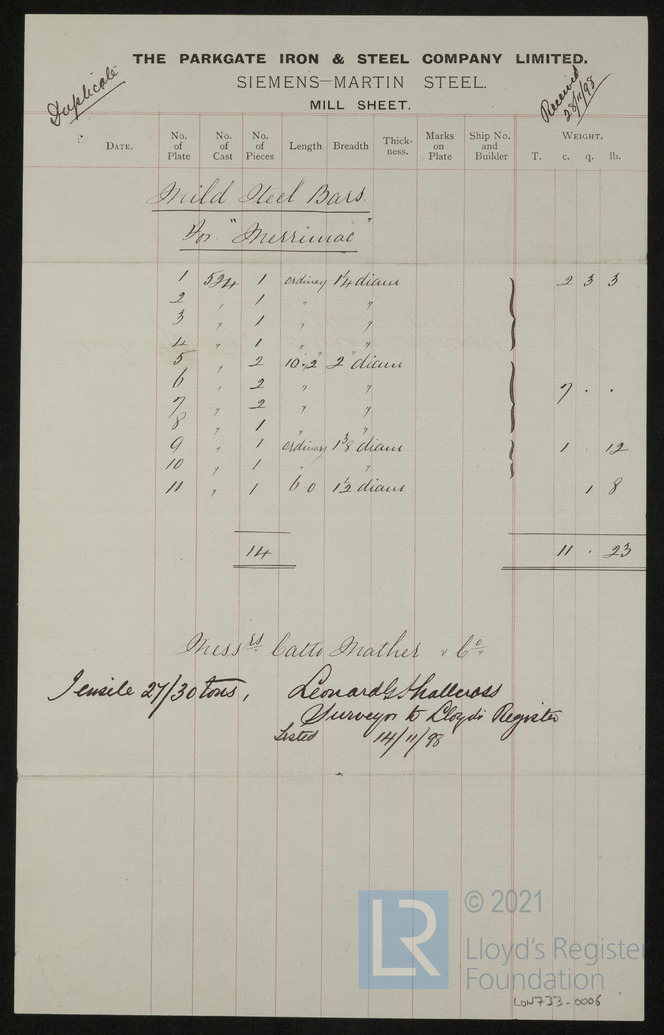 THE PARKGATE IRON & STEEL COMPANY LIMITED.
Duplicate
SIEMENS—MARTIN STEEL.
Received 28/11/98
MILL SHEET.
DATE. No. of Plate No. of Cast No. of Pieces Length Breadth Thick-ness. Marks on Plate Ship No. and Builder WEIGHT. T. c. q. lb.
Mild Steel Bars
For "Merrimac"
1 524 1 ordinary 1¼ diam 2 3 3
2 " 1 " "
3 " 1 " "
4 " 1 " "
5 " 2 10.2" 2" diam
6 " 2 " " 7 . .
7 " 2 " "
8 " 1 " "
9 " 1 ordinary 1⅜ diam 1 . 12
10 " 1 " "
11 " 1 6 0 1½ diam 1 8
14 11 . 23
Messrs Catto Mather & Co
Tensile 27/30 tons, Leonard G Shallcross
Surveyor to Lloyds Register
Tested 14/11/98
LR
© 2021
Lloyd's Register
Foundation
LON733-0006